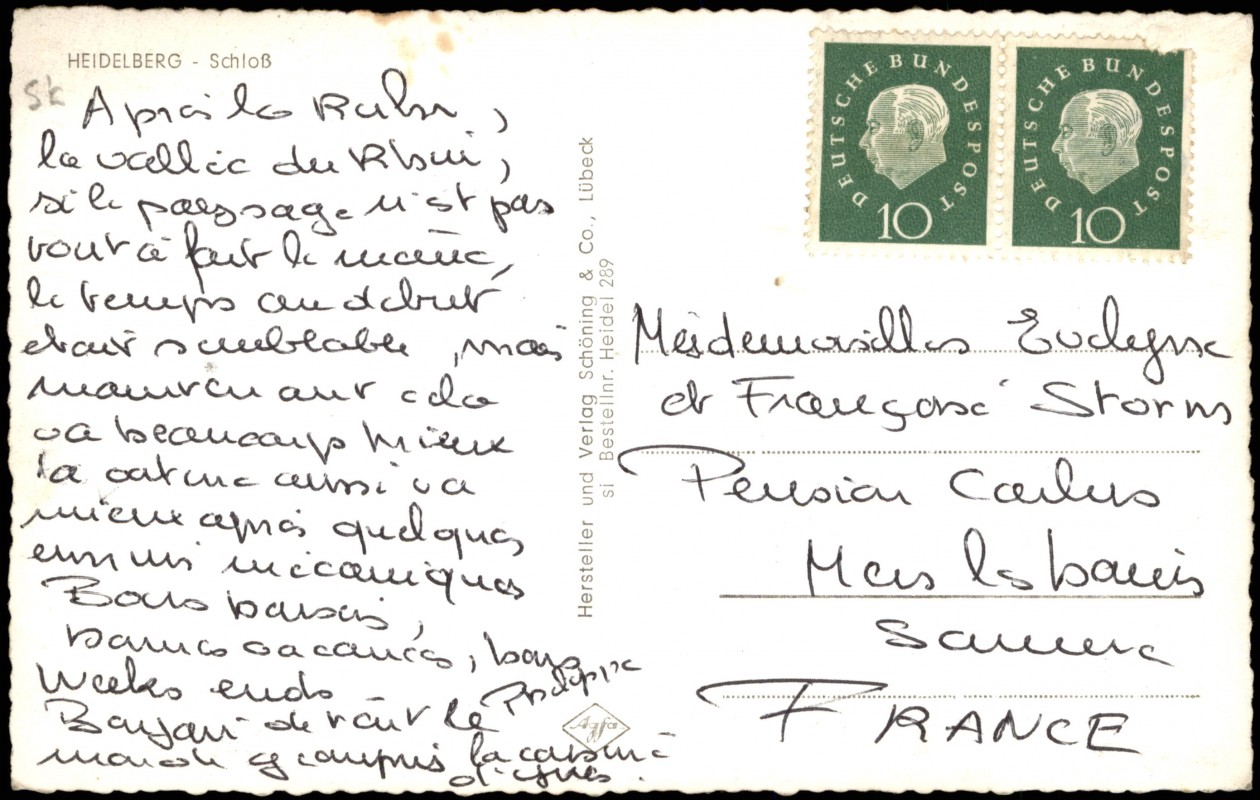 HEIDELBERG - Schloß
Sk
Après la Ruhr,
la vallée du Rhin,
si le paysage n'est pas
tout à fait le même,
le temps au début
était semblable, mais
maintenant cela
va beaucoup mieux
la voiture aussi va
mieux après quelques
ennuis mécaniques
Bons baisers,
bonnes vacances, bons
weeks ends -
Philippe
Bonjour de tout le
monde y compris la cousine
d'Ypres.
Hersteller und Verlag Schöning & Co., Lübeck
si Bestellnr. Heidel 289
Agfa
DEUTSCHE BUNDESPOST
10
DEUTSCHE BUNDESPOST
10
Mesdemoiselles Evelyne
et Françoise Storms
Pension
Mers les bains
Somme
FRANCE